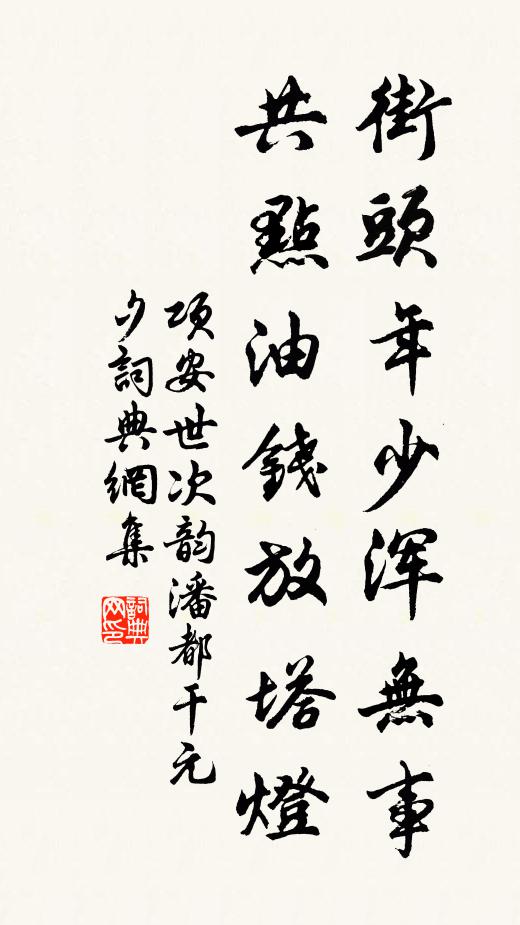 街頭年少浑無事
共點油錢放塔燈
项安世次韵潘都干元
夕詞典網集
詞典
网印